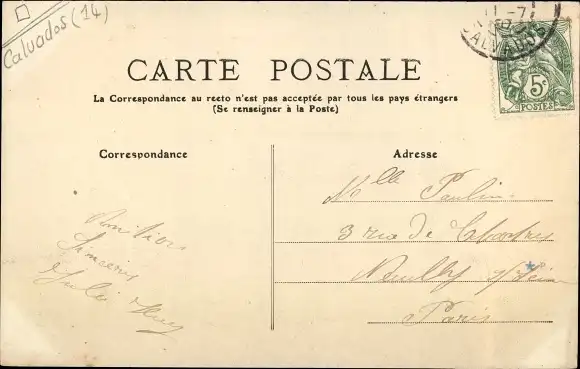 Calvados (14)
11 -7
CALVADOS
5c
POSTES
CARTE POSTALE
La Correspondance au recto n'est pas acceptée par tous les pays étrangers
(Se renseigner à la Poste)
Correspondance
Adresse
Mlle Pauline
3 rue de Chartres
Neuilly s/Seine
Paris
Amitiés
Sincères
Julie